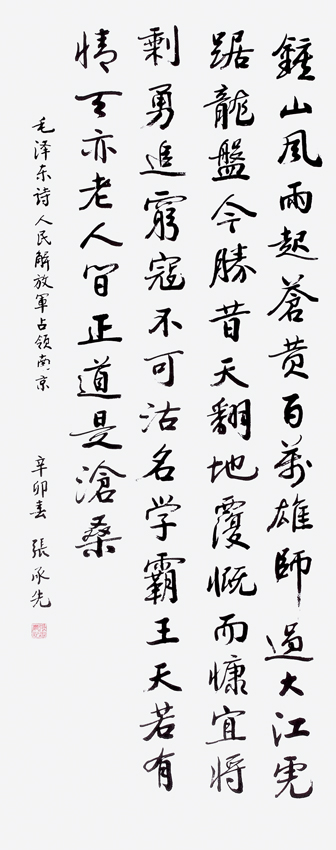 鍾山風雨起蒼黄百萬雄師過大江虎
踞龍盤今勝昔天翻地覆慨而慷宜将
剩勇追窮寇不可沽名学霸王天若有
情天亦老人间正道是滄桑
毛泽东诗人民解放軍占领南京
辛卯春 張承先